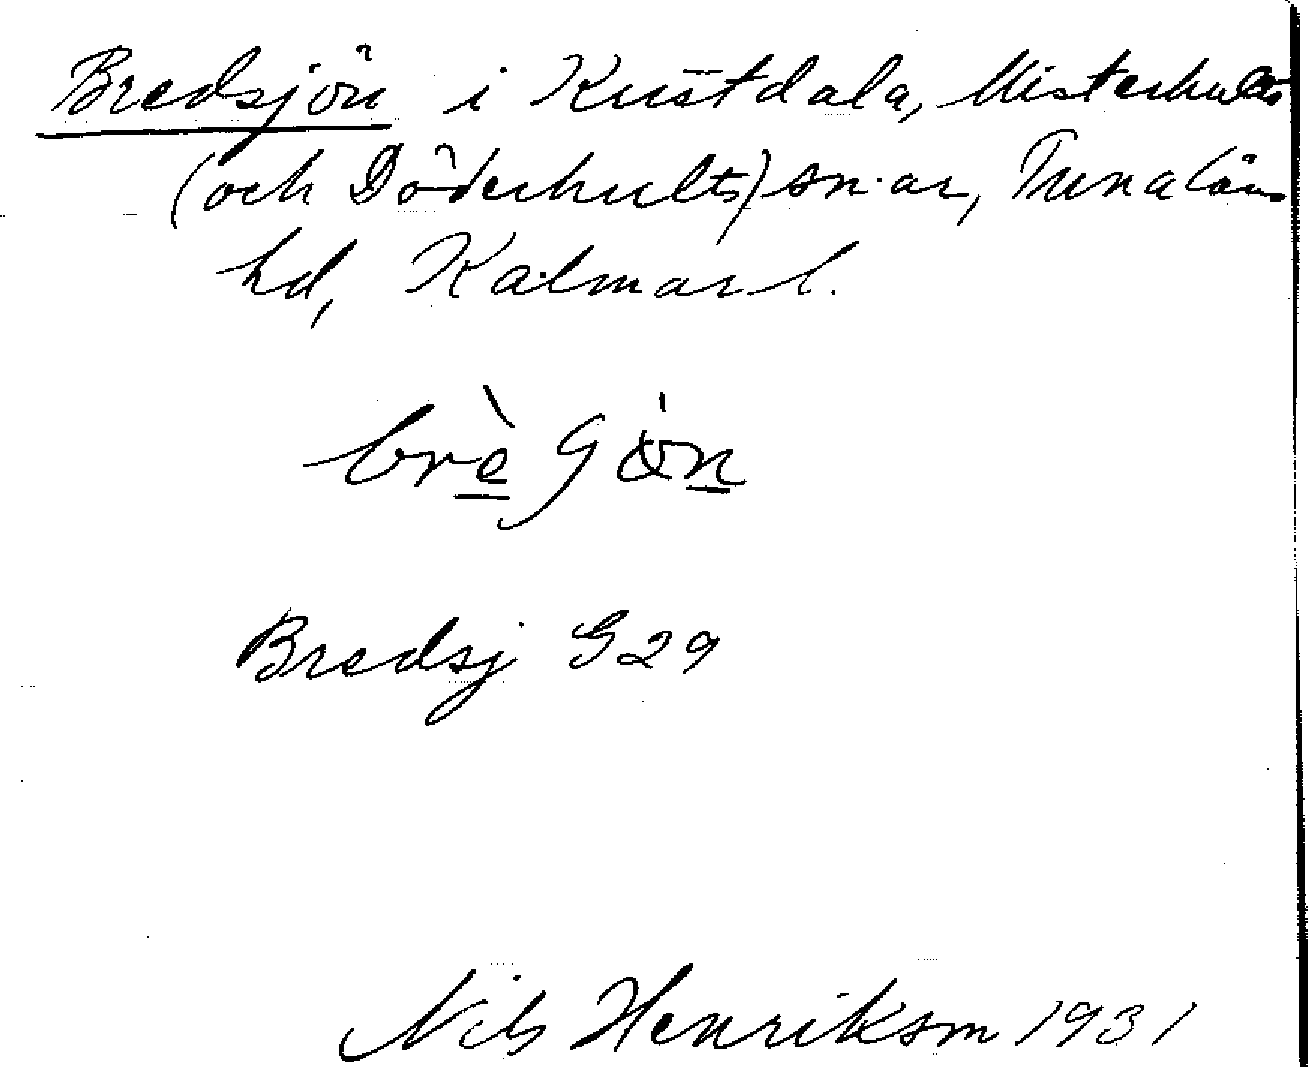 Bredsjön i Kustdala, Misterhults
(och Döderhults) sn-ar, Tunaläns
hd, Kalmar l.
Bredsj G 29
Nils Henriksm 1931